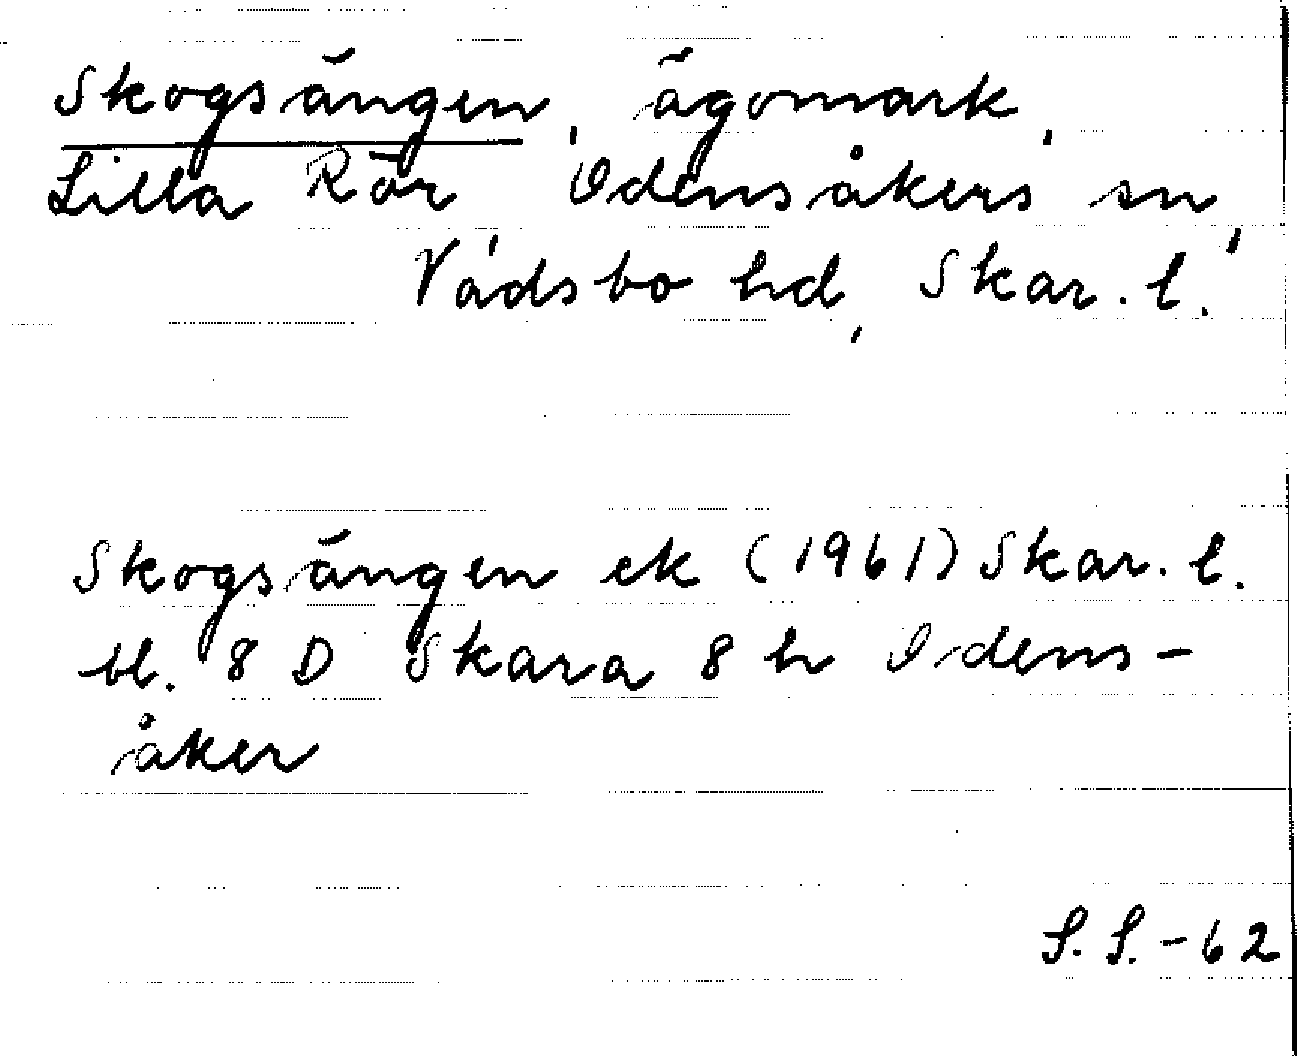 Skogsängen, ägomark,
Lilla Rör, Odensåkers sn,
Vadsbo hd, Skar. l.
Skogsängen ek (1961) Skar. l.
bl. 8 D Skara 8 h Odens-
åker
S. S. - 62